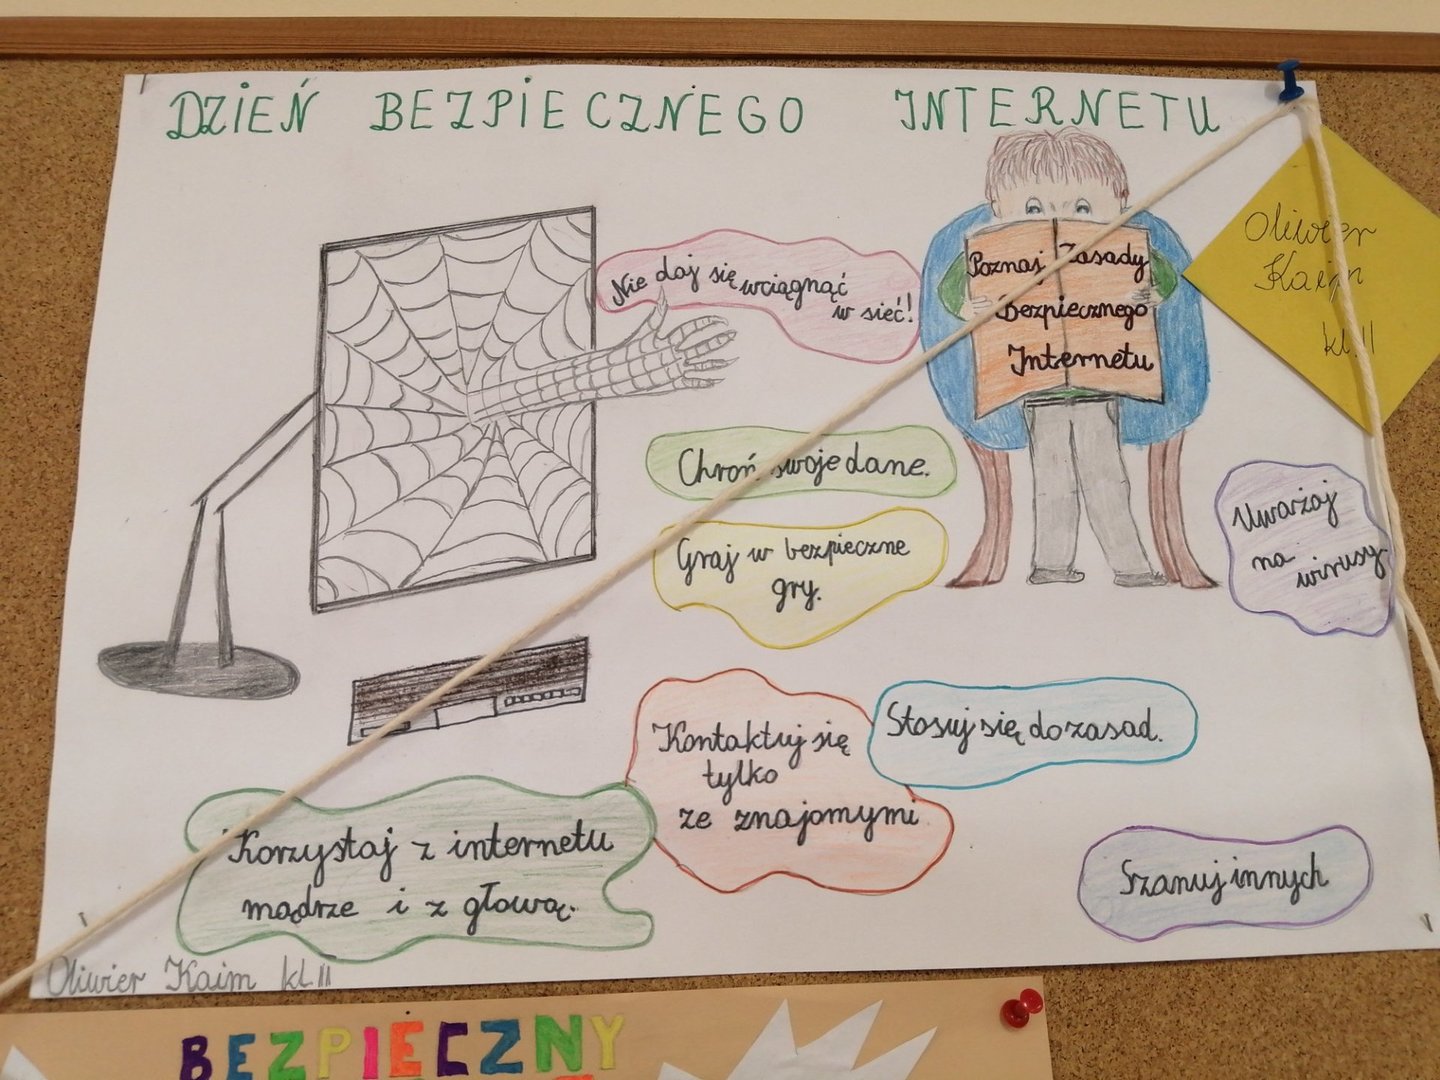 DZIEŃ BEZPIECZNEGO INTERNETU
Nie daj się wciągnąć
w sieć!
Poznaj Zasady
Bezpiecznego
Internetu
Oliwier
Kaim
kl.II
Chroń swoje dane.
Graj w bezpieczne
gry.
Uważaj
na wirusy.
Kontaktuj się
tylko
ze znajomymi
Stosuj się do zasad.
Korzystaj z internetu
mądrze i z głową.
Szanuj innych
Oliwier Kaim kl.II
BEZPIECZNY